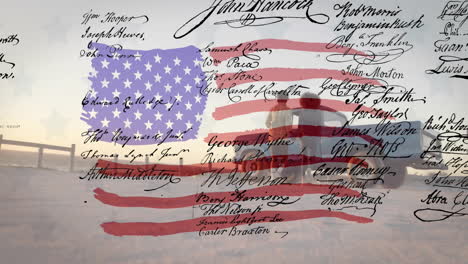 John Hancock
Wm Hooper
Joseph Hewes,
John Penn
Edward Rutledge.
Thos. Heyward Junr.
Thomas Lynch Junr.
Arthur Middleton
Samuel Chase
Wm. Paca
Thos. Stone
Charles Carroll of Carrollton
George Wythe
Richard Henry Lee
Th Jefferson
Benj Harrison
Thos Nelson jr.
Francis Lightfoot Lee
Carter Braxton
Robt Morris
Benjamin Rush
Benj. Franklin
John Morton
Geo Clymer
Jas. Smith
Geo. Taylor
James Wilson
Geo. Ross
Caesar Rodney
Geo Read
Tho M:Kean
Lewis
Richd.
Abra